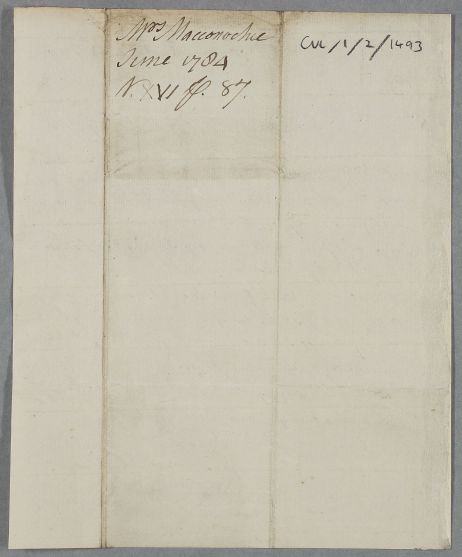 Mrs Macconochie
June 1784
N. XVI p. 87.
CUL/1/2/1493